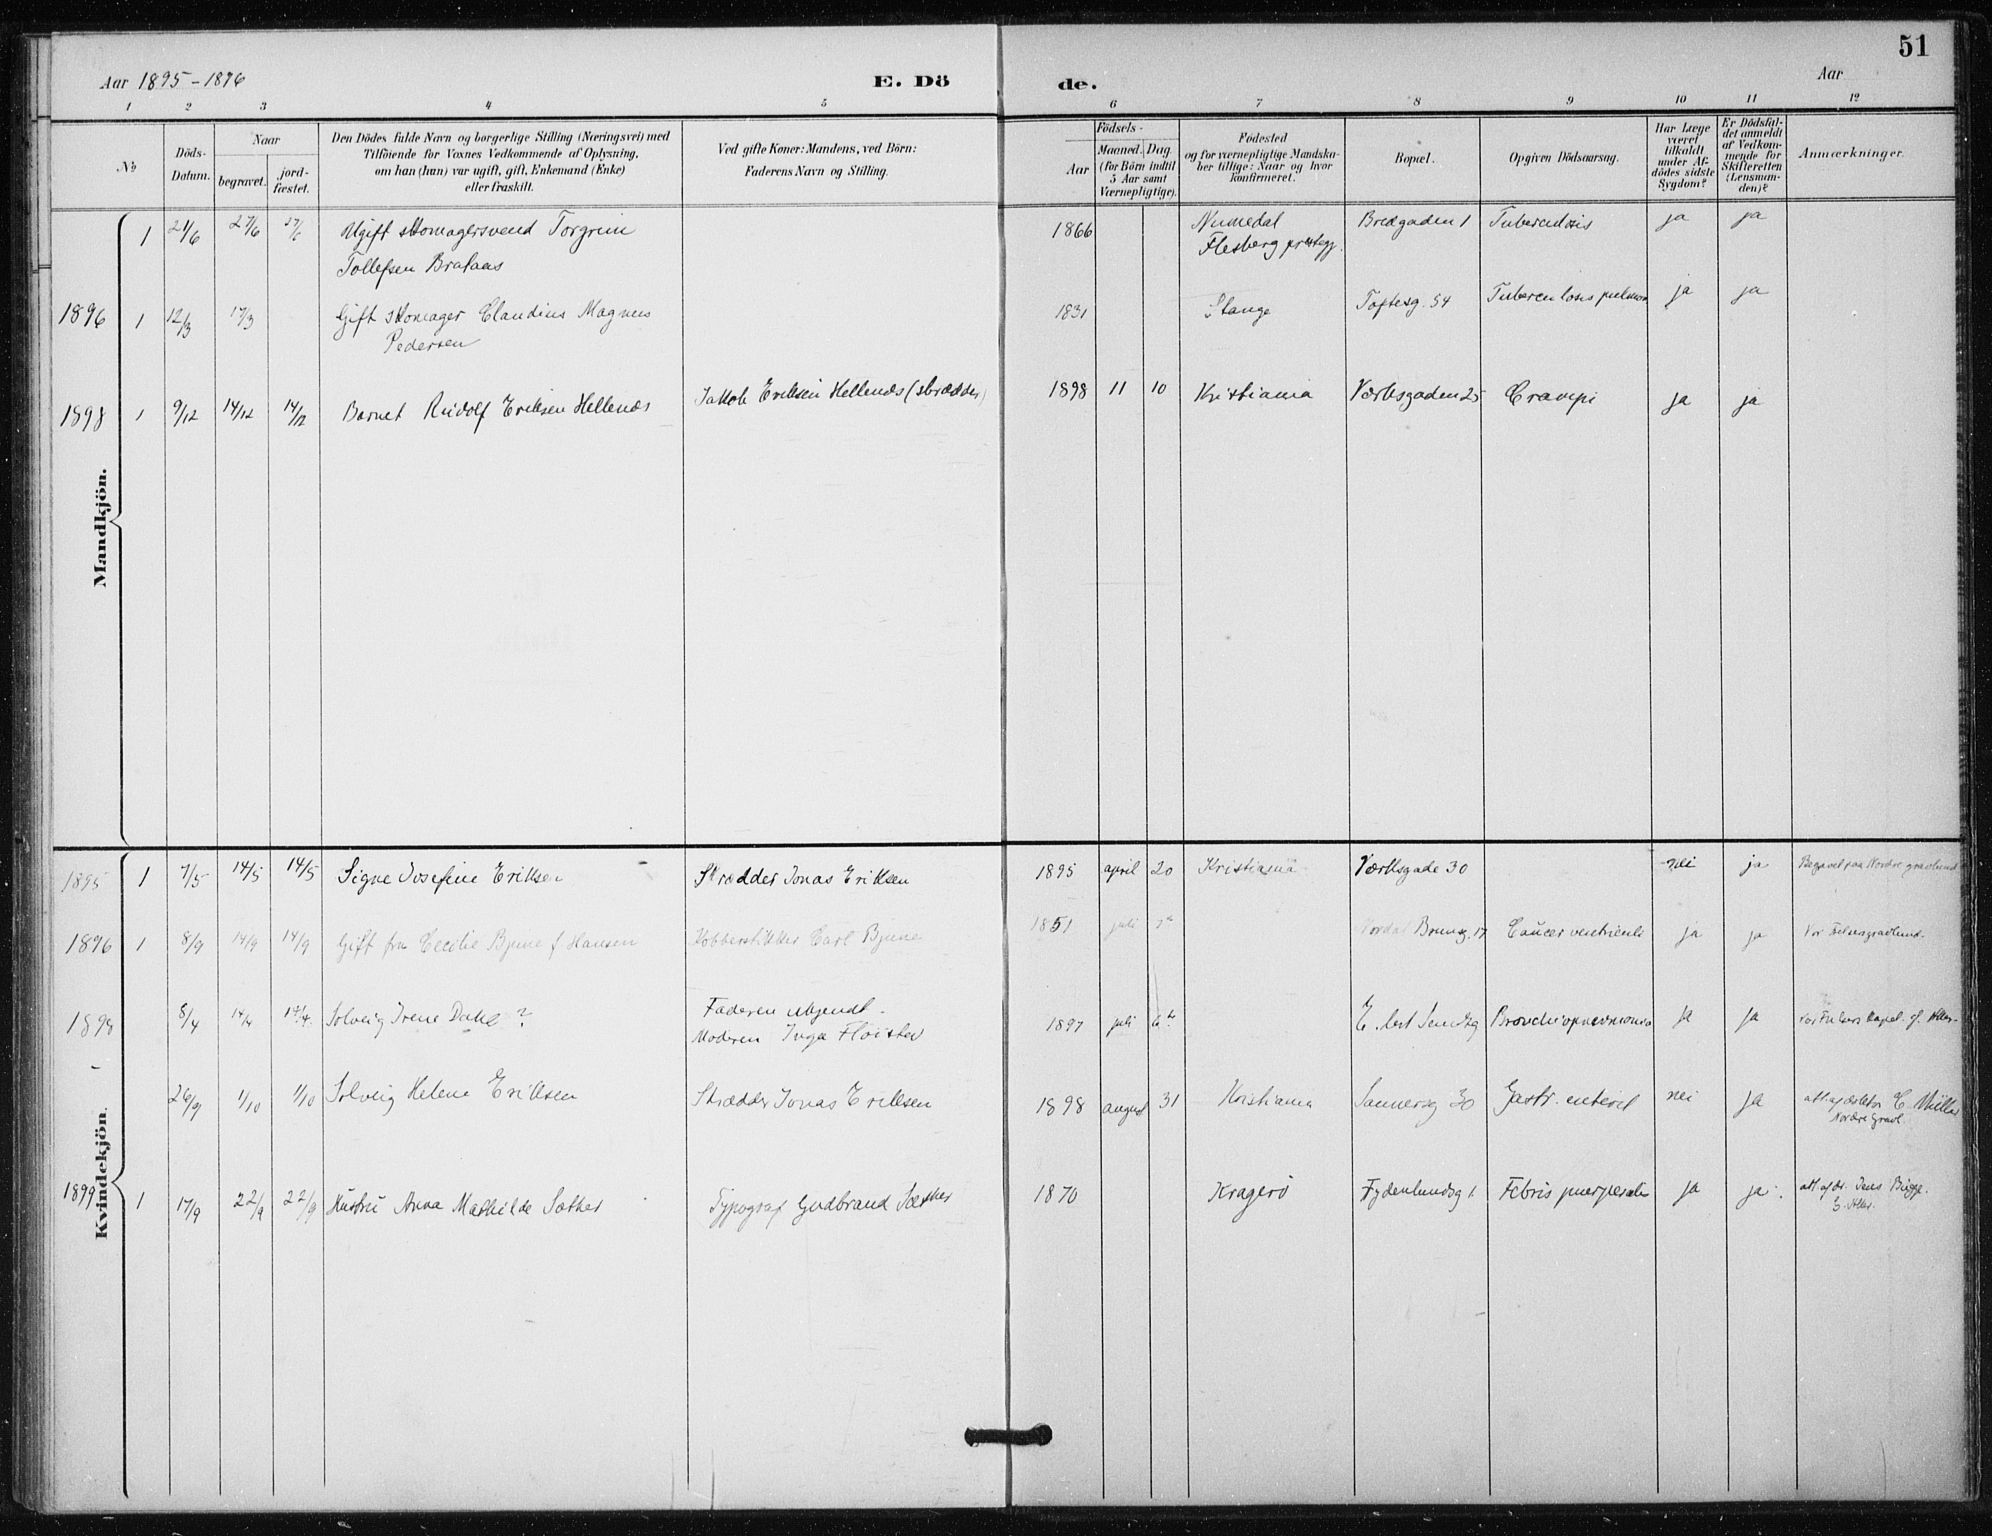 51
Aar 1895-1896 E. Dö de. Aar
1 2 3 4 5 6 7 8 9 10 11 12
No
Döds-Datum.
Naar
begravet. jord-fæstet.
Den Dödes fulde Navn og borgerlige Stilling (Næringsvei) med
Tilföiende for Voxnes Vedkommende af Oplysning,
om han (hun) var ugift, gift, Enkemand (Enke)
eller fraskilt.
Ved gifte Koner: Mandens, ved Börn:
Faderens Navn og Stilling.
Födsels-
Aar Maaned. Dag.
(for Börn indtil
5 Aar samt
Værnepligtige).
Födested
og for værnepligtige Mandskaber tillige: Naar og hvor
konfirmeret.
Bopæl.
Opgiven Dödsaarsag.
Har Læge
været
tilkaldt
under Afdödes sidste
Sygdom?
Er Dödsfaldet anmeldt
af Vedkommende for
Skifteretten
(Lensmanden)?
Anmærkninger.
Mandkjön.
1 21/6 27/6 27/6 Ugift skomagersvend Torgrim 1866 Numedal Bredgaden 1 Tuberculosis ja ja
Tollefsen Brataas Flesberg prestegj.
1896 1 12/3 17/3 Gift skomager Claudius Magnus 1831 Stange Toftesg. 54 Tuberculosis pulmon ja ja
Pedersen
1898 1 9/12 14/12 14/12 Barnet Rudolf Eriksen Hellenæs Jakob Eriksen Hellenæs (skrædder) 1898 11 10 Kristiania Værksgaden 25 Crampi ja ja
Kvindekjön.
1895 1 7/5 14/5 14/5 Signe Josefine Eriksen Skrædder Jonas Eriksen 1895 april 20 Kristiania Værksgade 30 nei ja Begravet paa Nordre gravlund
1896 1 8/9 14/9 14/9 Gift fru Cecilie Bjune f Hansen Kobberstikker Carl Bjune 1851 juli Nordal Brunsg. 17 Cancer ventriculi ja ja Vor Frelsers gravlund.
1898 8/4 14/4 14/4 Solveig Irene Dahl ? Faderen ukjendt. 1897 juli 6te Bronchiopneumonia ja ja
Moderen Inga Fløisted
26/9 1/10 1/10 Solveig Helene Eriksen Skrædder Jonas Eriksen 1898 august 31 Kristiania Sannersg 30 Gastr. enterit nei ja
Nordre gravl.
1899 1 17/9 22/9 22/9 Hustru Anna Mathilde Sæther Typograf Gudbrand Sæther 1870 Kragerø Fydenlundsg 1. Febris puerperalis ja ja. att. af dr. Jens